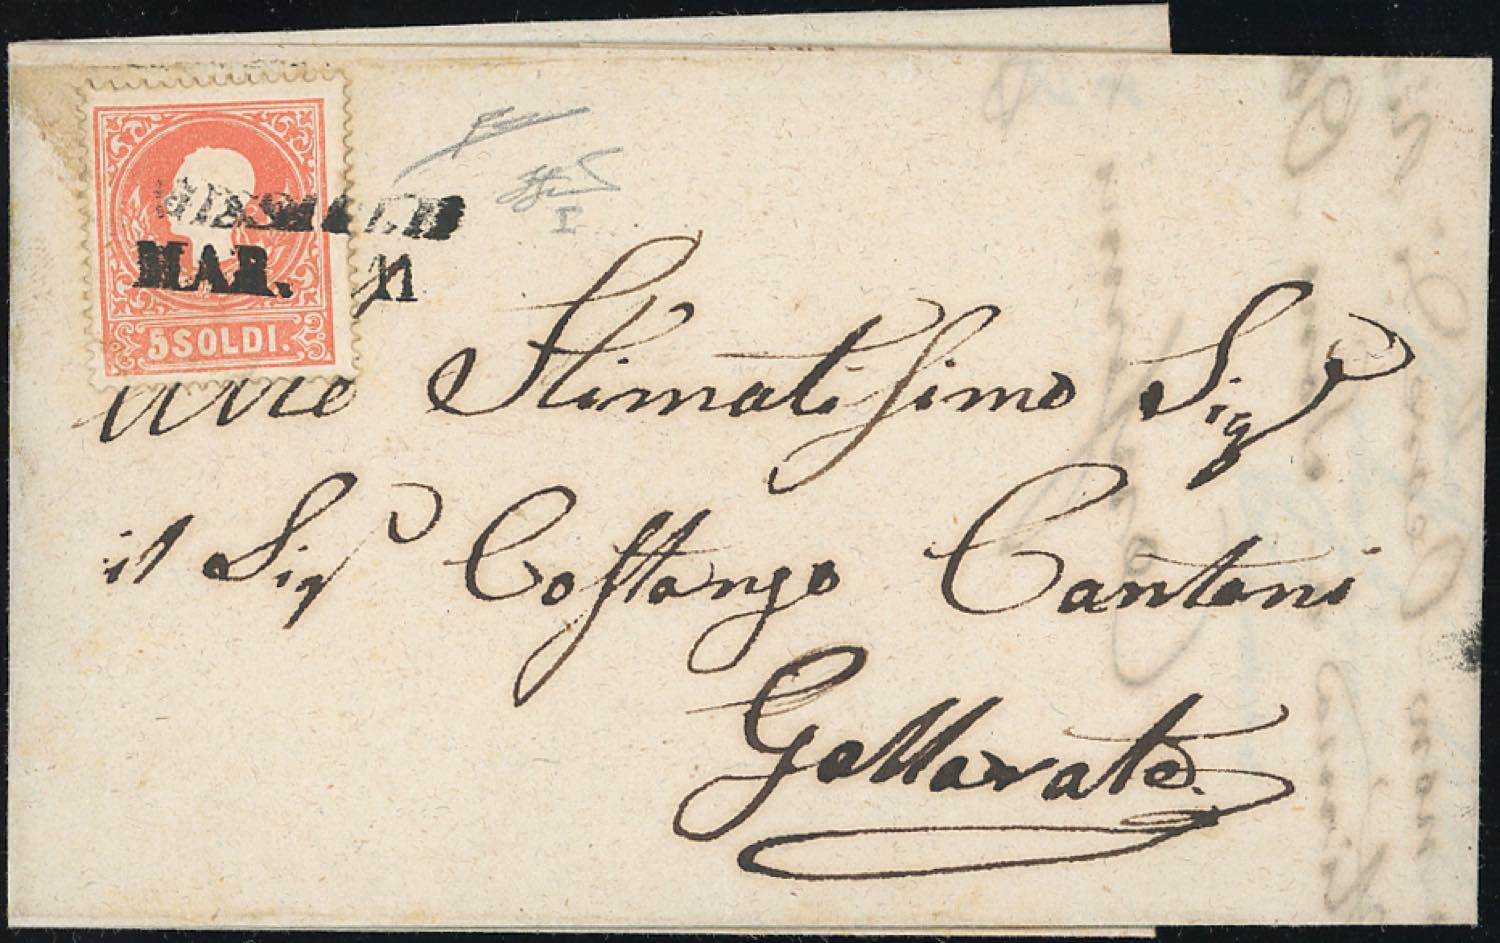 MAR. 11
5 SOLDI.
Stimatissimo Sig.r
il Sig.r Costanzo Cantoni
Gallarate
I